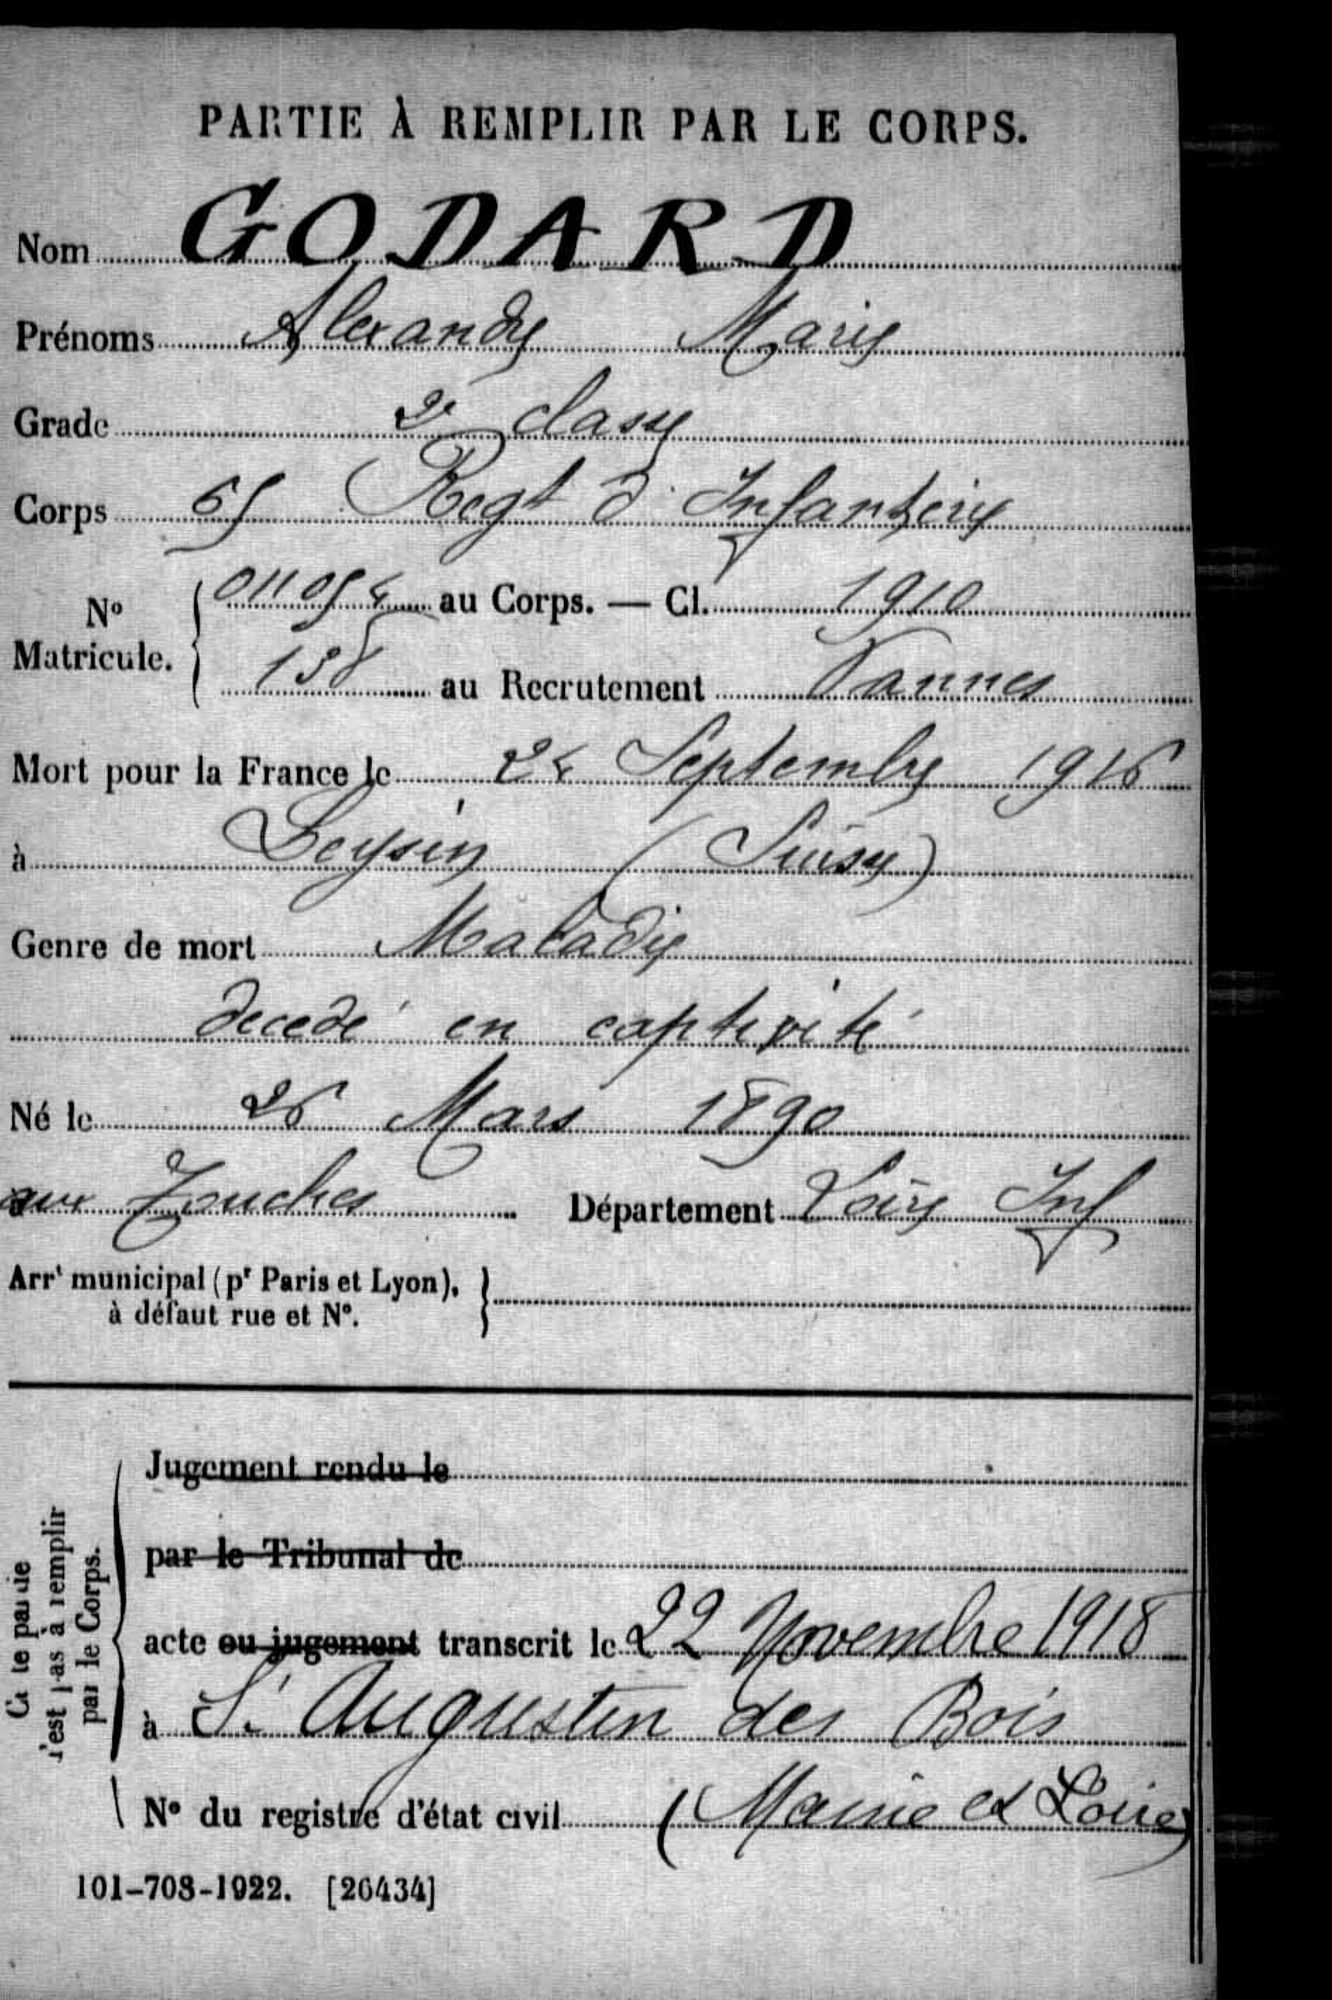 PARTIE À REMPLIR PAR LE CORPS.
Nom GODARD
Prénoms Alexandre Marie
Grade 2e classe
Corps 65 Regt d'Infanterie
No Matricule. 011054 au Corps. — Cl. 1910
138 au Recrutement Vannes
Mort pour la France le 24 Septembre 1916
à Leysin (Suisse)
Genre de mort Maladie
décédé en captivité
Né le 26 Mars 1890
aux Touches Département Loire Inf
Arrt municipal (pr Paris et Lyon),
à défaut rue et No.
Jugement rendu le
par le Tribunal de
acte ou jugement transcrit le 22 Novembre 1918
à St Augustin des Bois
No du registre d'état civil (Maine et Loire)
Cette partie
n'est pas à remplir
par le Corps.
101-708-1922. [26434]